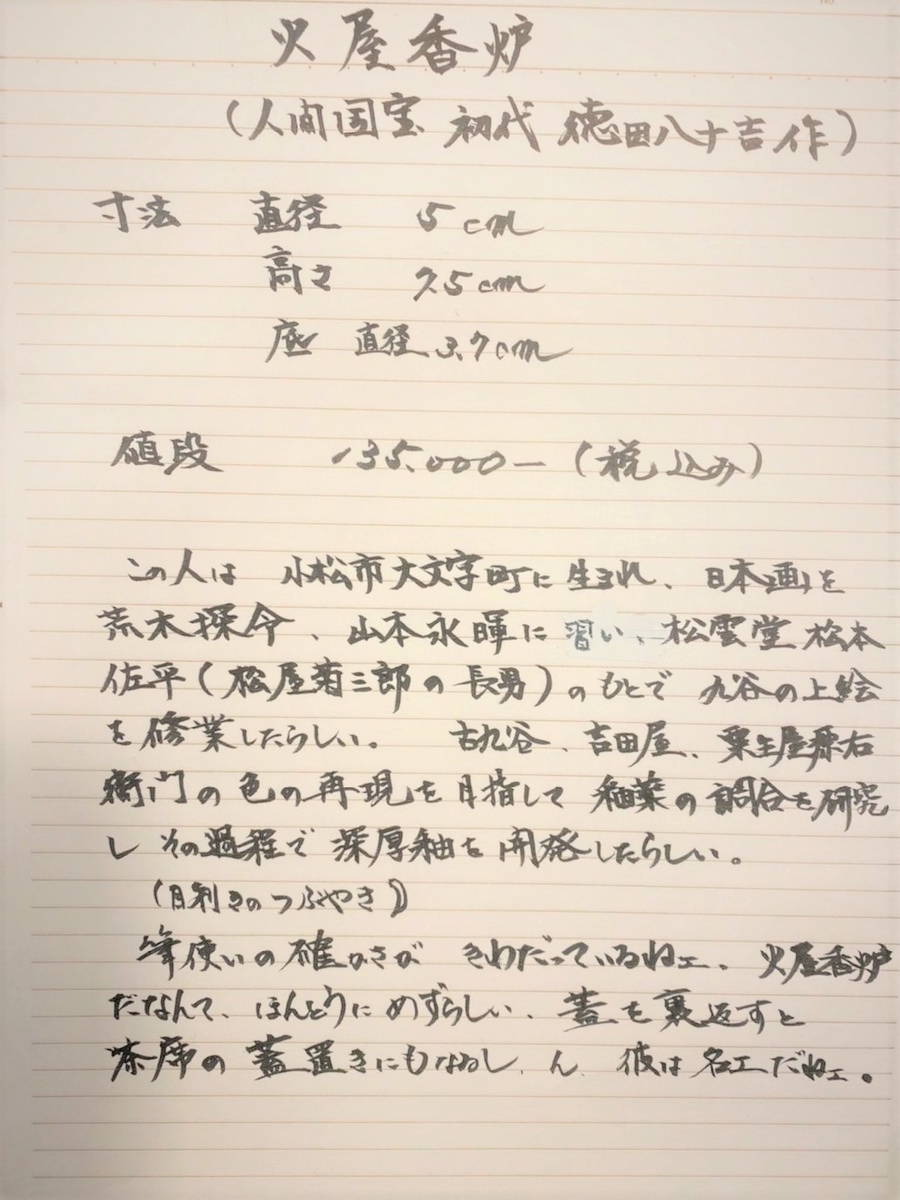 火屋香炉
(人間国宝 初代 徳田八十吉作)
寸法 直径 5cm
高さ 7.5cm
底 直径 3.7cm
値段 135.000ー (税込み)
この人は 小松市大文字町に生まれ、日本画を
荒木探令、山本永暉に習い、松雲堂 松本
佐平(松屋菊三郎の長男)のもとで 九谷の上絵
を修業したらしい。 古九谷、吉田屋、粟生屋源右
衛門の色の再現を目指して 釉薬の調合を研究
し その過程で 深厚釉を開発したらしい。
(目利きのつぶやき)
筆使いの確かさが きわだっているねェ、火屋香炉
だなんて、ほんとうにめずらしい、蓋を裏返すと
茶席の 蓋置きにもなるし、ん、彼は名工だねェ。